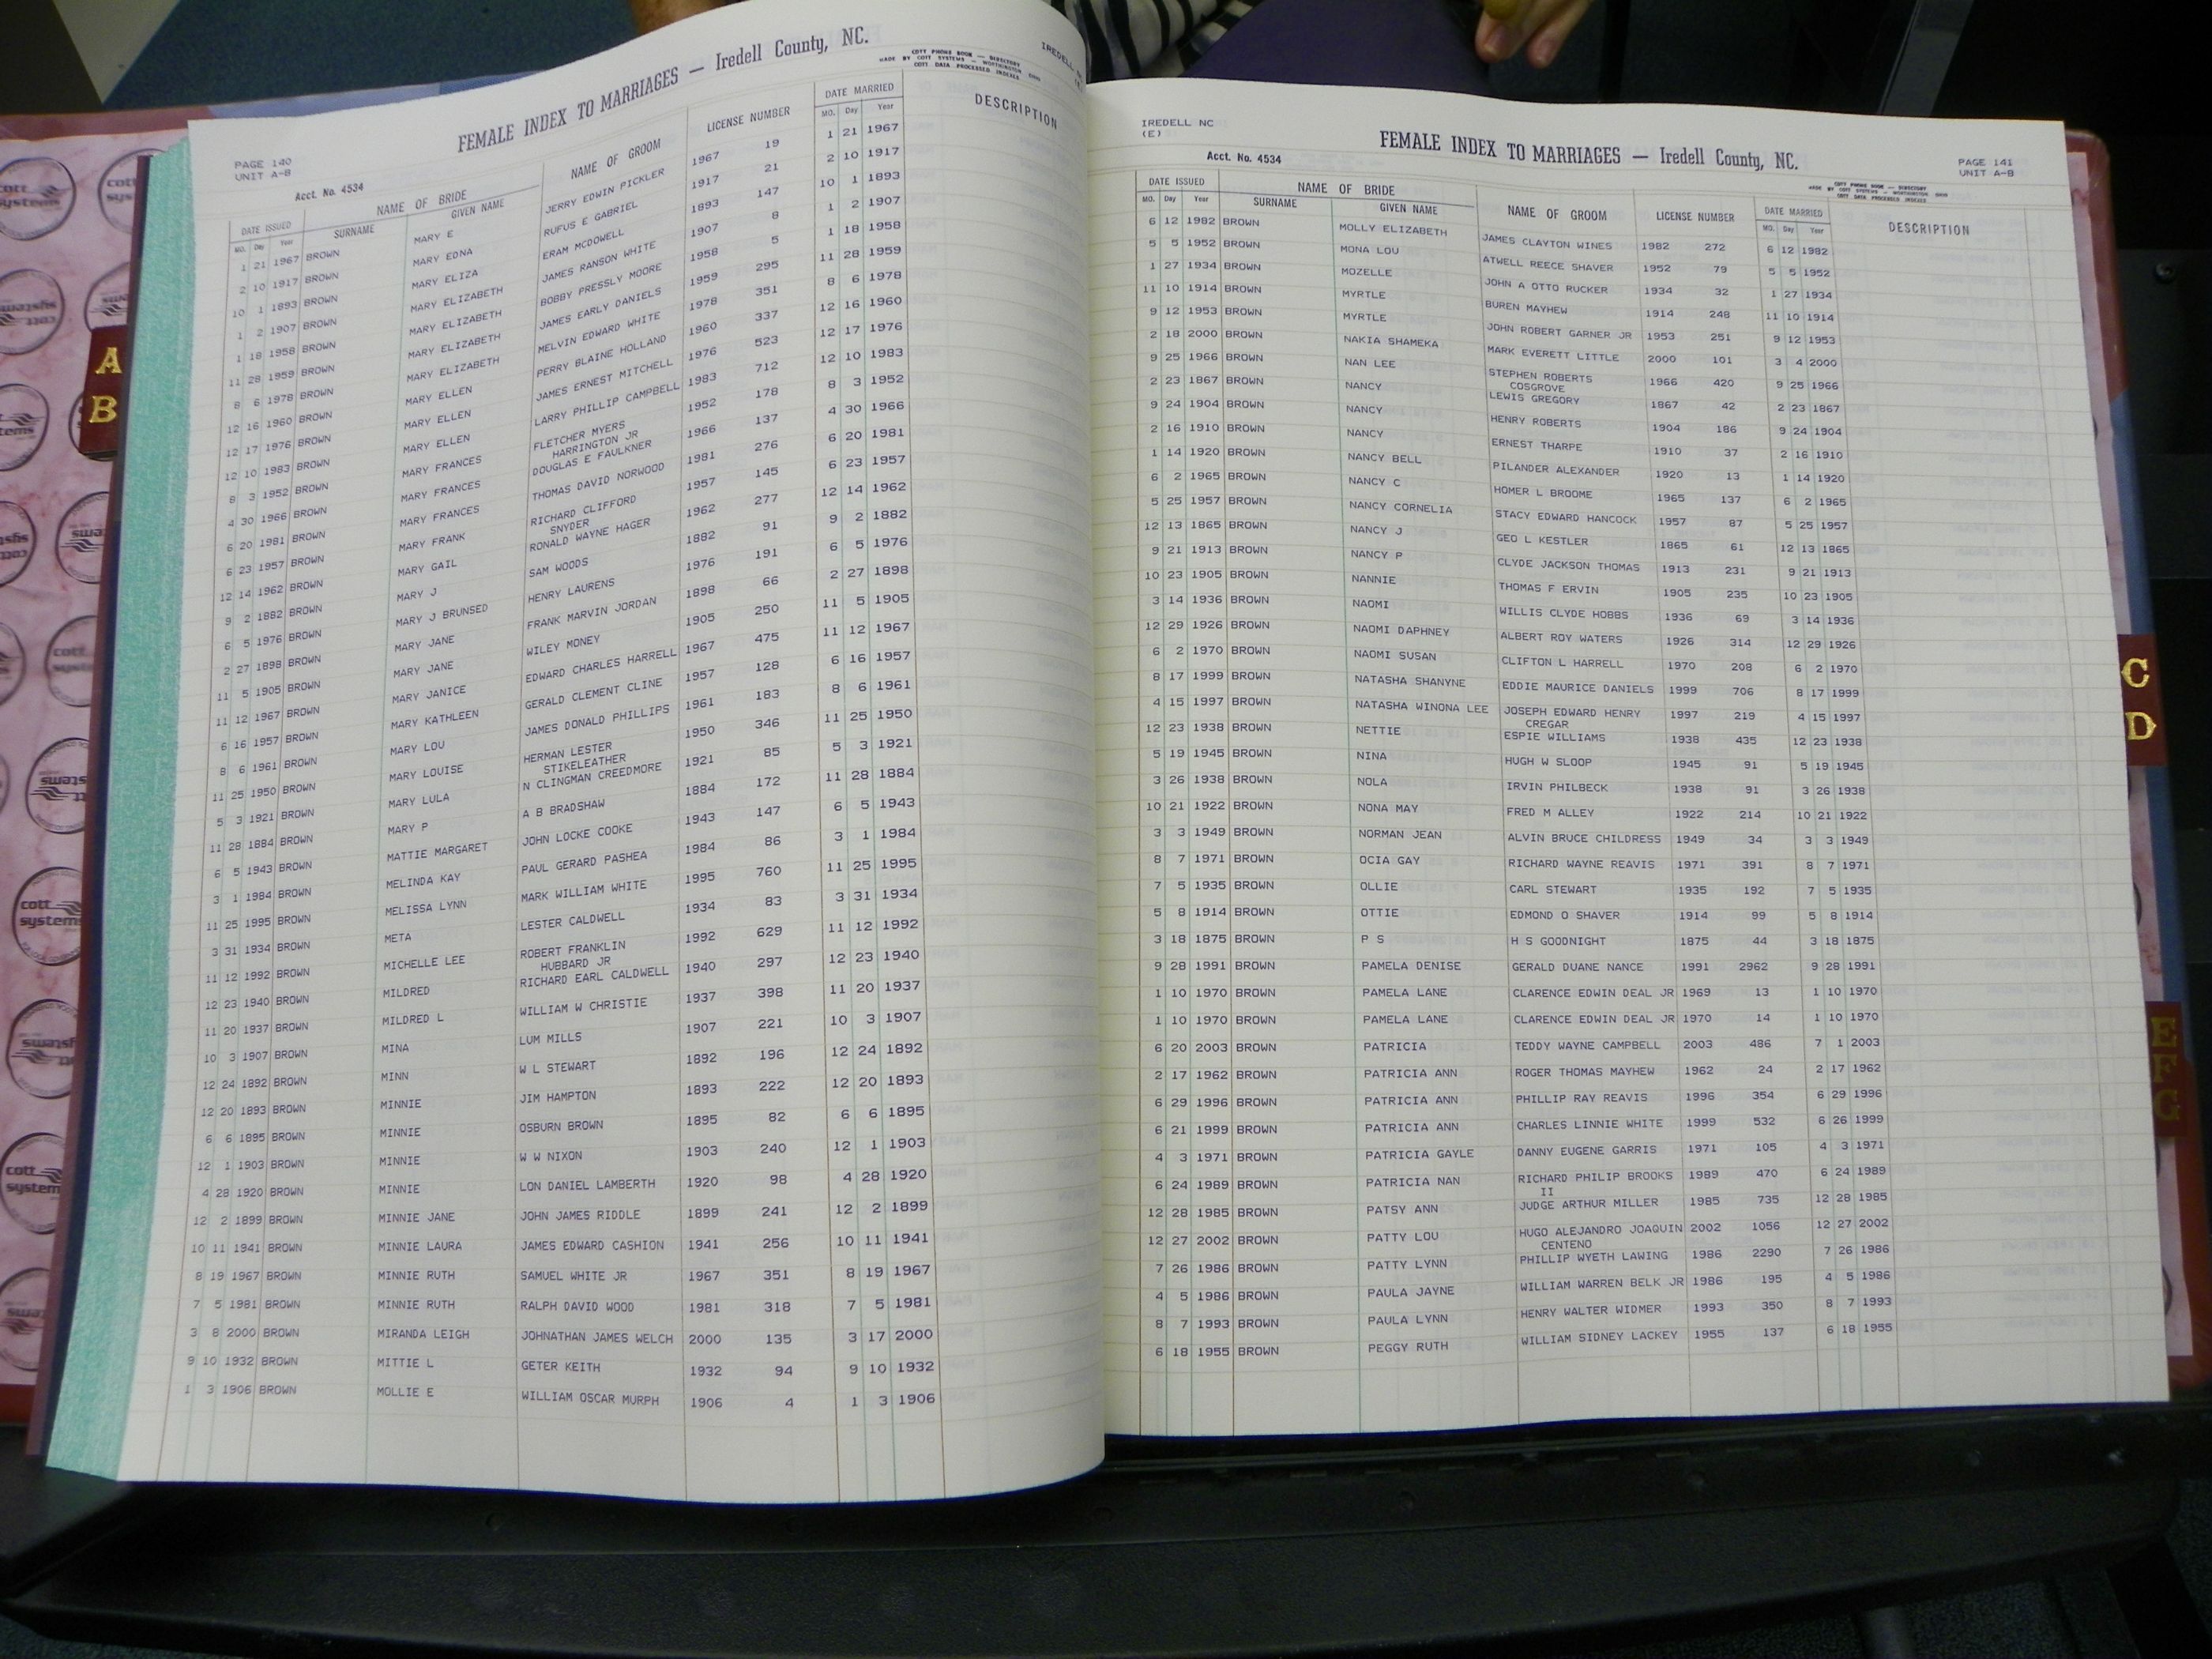 FEMALE INDEX TO MARRIAGES — Iredell County, NC.
COTT PHONE BOOK — DIRECTORY
MADE BY COTT SYSTEMS — WORTHINGTON OHIO
COTT DATA PROCESSED INDEXES
PAGE 140
UNIT A-B
Acct. No. 4534
DATE ISSUED NAME OF BRIDE NAME OF GROOM LICENSE NUMBER DATE MARRIED DESCRIPTION
MO. Day Year SURNAME GIVEN NAME MO. Day Year
1 21 1967 BROWN MARY E JERRY EDWIN PICKLER 1967 19 1 21 1967
2 10 1917 BROWN MARY EDNA RUFUS E GABRIEL 1917 21 2 10 1917
10 1 1893 BROWN MARY ELIZA ERAM MCDOWELL 1893 147 10 1 1893
1 2 1907 BROWN MARY ELIZABETH JAMES RANSON WHITE 1907 8 1 2 1907
1 18 1958 BROWN MARY ELIZABETH BOBBY PRESSLY MOORE 1958 5 1 18 1958
11 28 1959 BROWN MARY ELIZABETH JAMES EARLY DANIELS 1959 295 11 28 1959
8 6 1978 BROWN MARY ELIZABETH MELVIN EDWARD WHITE 1978 351 8 6 1978
12 16 1960 BROWN MARY ELLEN PERRY BLAINE HOLLAND 1960 337 12 16 1960
12 17 1976 BROWN MARY ELLEN JAMES ERNEST MITCHELL 1976 523 12 17 1976
12 10 1983 BROWN MARY ELLEN LARRY PHILLIP CAMPBELL 1983 712 12 10 1983
8 3 1952 BROWN MARY FRANCES FLETCHER MYERS 1952 178 8 3 1952
HARRINGTON JR
4 30 1966 BROWN MARY FRANCES DOUGLAS E FAULKNER 1966 137 4 30 1966
6 20 1981 BROWN MARY FRANCES THOMAS DAVID NORWOOD 1981 276 6 20 1981
6 23 1957 BROWN MARY FRANK RICHARD CLIFFORD 1957 145 6 23 1957
SNYDER
12 14 1962 BROWN MARY GAIL RONALD WAYNE HAGER 1962 277 12 14 1962
9 2 1882 BROWN MARY J SAM WOODS 1882 91 9 2 1882
6 5 1976 BROWN MARY J BRUNSED HENRY LAURENS 1976 191 6 5 1976
2 27 1898 BROWN MARY JANE FRANK MARVIN JORDAN 1898 66 2 27 1898
11 5 1905 BROWN MARY JANE WILEY MONEY 1905 250 11 5 1905
11 12 1967 BROWN MARY JANICE EDWARD CHARLES HARRELL 1967 475 11 12 1967
6 16 1957 BROWN MARY KATHLEEN GERALD CLEMENT CLINE 1957 128 6 16 1957
8 6 1961 BROWN MARY LOU JAMES DONALD PHILLIPS 1961 183 8 6 1961
11 25 1950 BROWN MARY LOUISE HERMAN LESTER 1950 346 11 25 1950
STIKELEATHER
5 3 1921 BROWN MARY LULA N CLINGMAN CREEDMORE 1921 85 5 3 1921
11 28 1884 BROWN MARY P A B BRADSHAW 1884 172 11 28 1884
6 5 1943 BROWN MATTIE MARGARET JOHN LOCKE COOKE 1943 147 6 5 1943
3 1 1984 BROWN MELINDA KAY PAUL GERARD PASHEA 1984 86 3 1 1984
11 25 1995 BROWN MELISSA LYNN MARK WILLIAM WHITE 1995 760 11 25 1995
3 31 1934 BROWN META LESTER CALDWELL 1934 83 3 31 1934
11 12 1992 BROWN MICHELLE LEE ROBERT FRANKLIN 1992 629 11 12 1992
HUBBARD JR
12 23 1940 BROWN MILDRED RICHARD EARL CALDWELL 1940 297 12 23 1940
11 20 1937 BROWN MILDRED L WILLIAM W CHRISTIE 1937 398 11 20 1937
10 3 1907 BROWN MINA LUM MILLS 1907 221 10 3 1907
12 24 1892 BROWN MINN W L STEWART 1892 196 12 24 1892
12 20 1893 BROWN MINNIE JIM HAMPTON 1893 222 12 20 1893
6 6 1895 BROWN MINNIE OSBURN BROWN 1895 82 6 6 1895
12 1 1903 BROWN MINNIE W W NIXON 1903 240 12 1 1903
4 28 1920 BROWN MINNIE LON DANIEL LAMBERTH 1920 98 4 28 1920
12 2 1899 BROWN MINNIE JANE JOHN JAMES RIDDLE 1899 241 12 2 1899
10 11 1941 BROWN MINNIE LAURA JAMES EDWARD CASHION 1941 256 10 11 1941
8 19 1967 BROWN MINNIE RUTH SAMUEL WHITE JR 1967 351 8 19 1967
7 5 1981 BROWN MINNIE RUTH RALPH DAVID WOOD 1981 318 7 5 1981
3 8 2000 BROWN MIRANDA LEIGH JOHNATHAN JAMES WELCH 2000 135 3 17 2000
9 10 1932 BROWN MITTIE L GETER KEITH 1932 94 9 10 1932
1 3 1906 BROWN MOLLIE E WILLIAM OSCAR MURPH 1906 4 1 3 1906
IREDELL NC
(E)
FEMALE INDEX TO MARRIAGES — Iredell County, NC.
Acct. No. 4534
PAGE 141
UNIT A-B
COTT PHONE BOOK — DIRECTORY
MADE BY COTT SYSTEMS — WORTHINGTON OHIO
COTT DATA PROCESSED INDEXES
DATE ISSUED NAME OF BRIDE NAME OF GROOM LICENSE NUMBER DATE MARRIED DESCRIPTION
MO. Day Year SURNAME GIVEN NAME MO. Day Year
6 12 1982 BROWN MOLLY ELIZABETH JAMES CLAYTON WINES 1982 272 6 12 1982
5 5 1952 BROWN MONA LOU ATWELL REECE SHAVER 1952 79 5 5 1952
1 27 1934 BROWN MOZELLE JOHN A OTTO RUCKER 1934 32 1 27 1934
11 10 1914 BROWN MYRTLE BUREN MAYHEW 1914 248 11 10 1914
9 12 1953 BROWN MYRTLE JOHN ROBERT GARNER JR 1953 251 9 12 1953
2 18 2000 BROWN NAKIA SHAMEKA MARK EVERETT LITTLE 2000 101 3 4 2000
9 25 1966 BROWN NAN LEE STEPHEN ROBERTS 1966 420 9 25 1966
COSGROVE
2 23 1867 BROWN NANCY LEWIS GREGORY 1867 42 2 23 1867
9 24 1904 BROWN NANCY HENRY ROBERTS 1904 186 9 24 1904
2 16 1910 BROWN NANCY ERNEST THARPE 1910 37 2 16 1910
1 14 1920 BROWN NANCY BELL PILANDER ALEXANDER 1920 13 1 14 1920
6 2 1965 BROWN NANCY C HOMER L BROOME 1965 137 6 2 1965
5 25 1957 BROWN NANCY CORNELIA STACY EDWARD HANCOCK 1957 87 5 25 1957
12 13 1865 BROWN NANCY J GEO L KESTLER 1865 61 12 13 1865
9 21 1913 BROWN NANCY P CLYDE JACKSON THOMAS 1913 231 9 21 1913
10 23 1905 BROWN NANNIE THOMAS F ERVIN 1905 235 10 23 1905
3 14 1936 BROWN NAOMI WILLIS CLYDE HOBBS 1936 69 3 14 1936
12 29 1926 BROWN NAOMI DAPHNEY ALBERT ROY WATERS 1926 314 12 29 1926
6 2 1970 BROWN NAOMI SUSAN CLIFTON L HARRELL 1970 208 6 2 1970
8 17 1999 BROWN NATASHA SHANYNE EDDIE MAURICE DANIELS 1999 706 8 17 1999
4 15 1997 BROWN NATASHA WINONA LEE JOSEPH EDWARD HENRY 1997 219 4 15 1997
CREGAR
12 23 1938 BROWN NETTIE ESPIE WILLIAMS 1938 435 12 23 1938
5 19 1945 BROWN NINA HUGH W SLOOP 1945 91 5 19 1945
3 26 1938 BROWN NOLA IRVIN PHILBECK 1938 91 3 26 1938
10 21 1922 BROWN NONA MAY FRED M ALLEY 1922 214 10 21 1922
3 3 1949 BROWN NORMAN JEAN ALVIN BRUCE CHILDRESS 1949 34 3 3 1949
8 7 1971 BROWN OCIA GAY RICHARD WAYNE REAVIS 1971 391 8 7 1971
7 5 1935 BROWN OLLIE CARL STEWART 1935 192 7 5 1935
5 8 1914 BROWN OTTIE EDMOND O SHAVER 1914 99 5 8 1914
3 18 1875 BROWN P S H S GOODNIGHT 1875 44 3 18 1875
9 28 1991 BROWN PAMELA DENISE GERALD DUANE NANCE 1991 2962 9 28 1991
1 10 1970 BROWN PAMELA LANE CLARENCE EDWIN DEAL JR 1969 13 1 10 1970
1 10 1970 BROWN PAMELA LANE CLARENCE EDWIN DEAL JR 1970 14 1 10 1970
6 20 2003 BROWN PATRICIA TEDDY WAYNE CAMPBELL 2003 486 7 1 2003
2 17 1962 BROWN PATRICIA ANN ROGER THOMAS MAYHEW 1962 24 2 17 1962
6 29 1996 BROWN PATRICIA ANN PHILLIP RAY REAVIS 1996 354 6 29 1996
6 21 1999 BROWN PATRICIA ANN CHARLES LINNIE WHITE 1999 532 6 26 1999
4 3 1971 BROWN PATRICIA GAYLE DANNY EUGENE GARRIS 1971 105 4 3 1971
6 24 1989 BROWN PATRICIA NAN RICHARD PHILIP BROOKS 1989 470 6 24 1989
II
12 28 1985 BROWN PATSY ANN JUDGE ARTHUR MILLER 1985 735 12 28 1985
12 27 2002 BROWN PATTY LOU HUGO ALEJANDRO JOAQUIN 2002 1056 12 27 2002
CENTENO
7 26 1986 BROWN PATTY LYNN PHILLIP WYETH LAWING 1986 2290 7 26 1986
4 5 1986 BROWN PAULA JAYNE WILLIAM WARREN BELK JR 1986 195 4 5 1986
8 7 1993 BROWN PAULA LYNN HENRY WALTER WIDMER 1993 350 8 7 1993
6 18 1955 BROWN PEGGY RUTH WILLIAM SIDNEY LACKEY 1955 137 6 18 1955
A
B
C
D
E
F
G
cott
systems